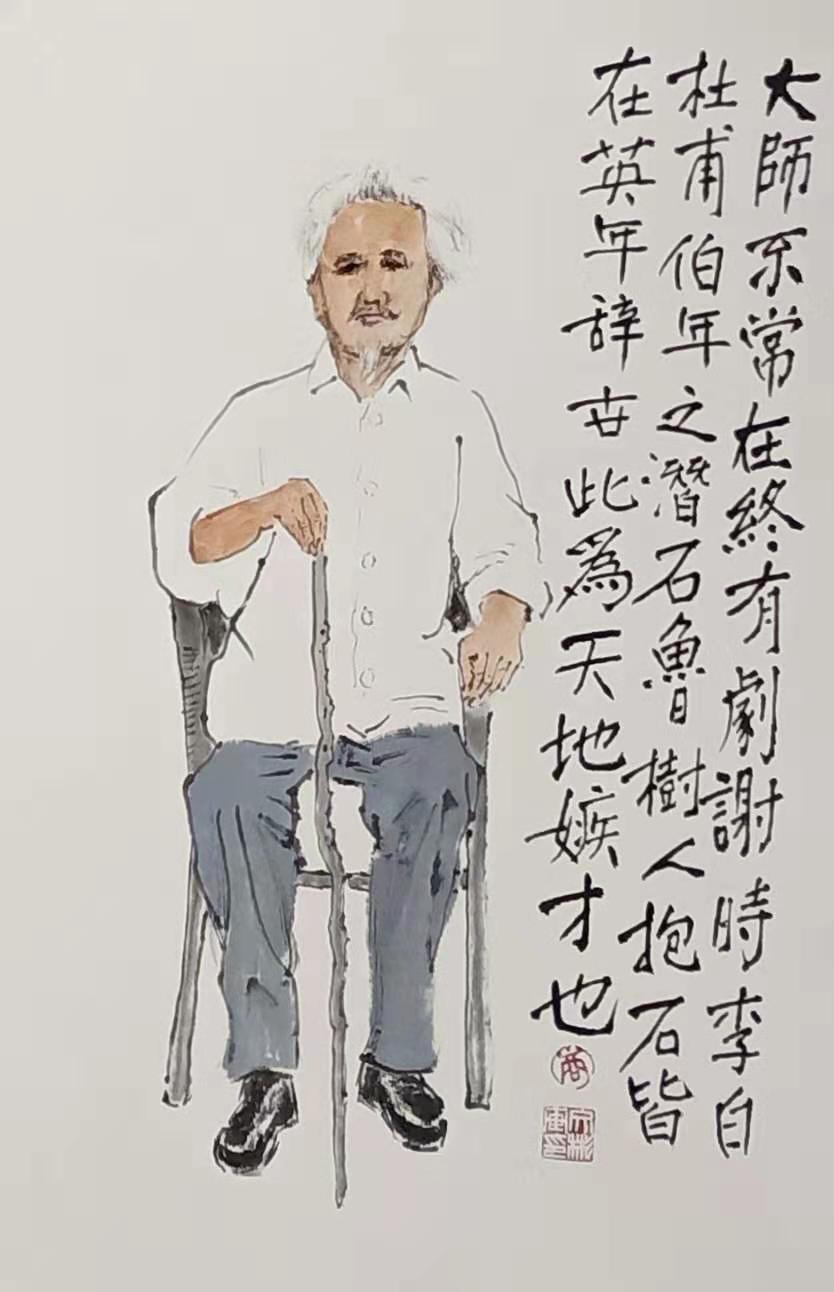 大師不常在終有劇謝時李白
杜甫伯年之潛石魯樹人抱石皆
在英年辞世此爲天地嫉才也